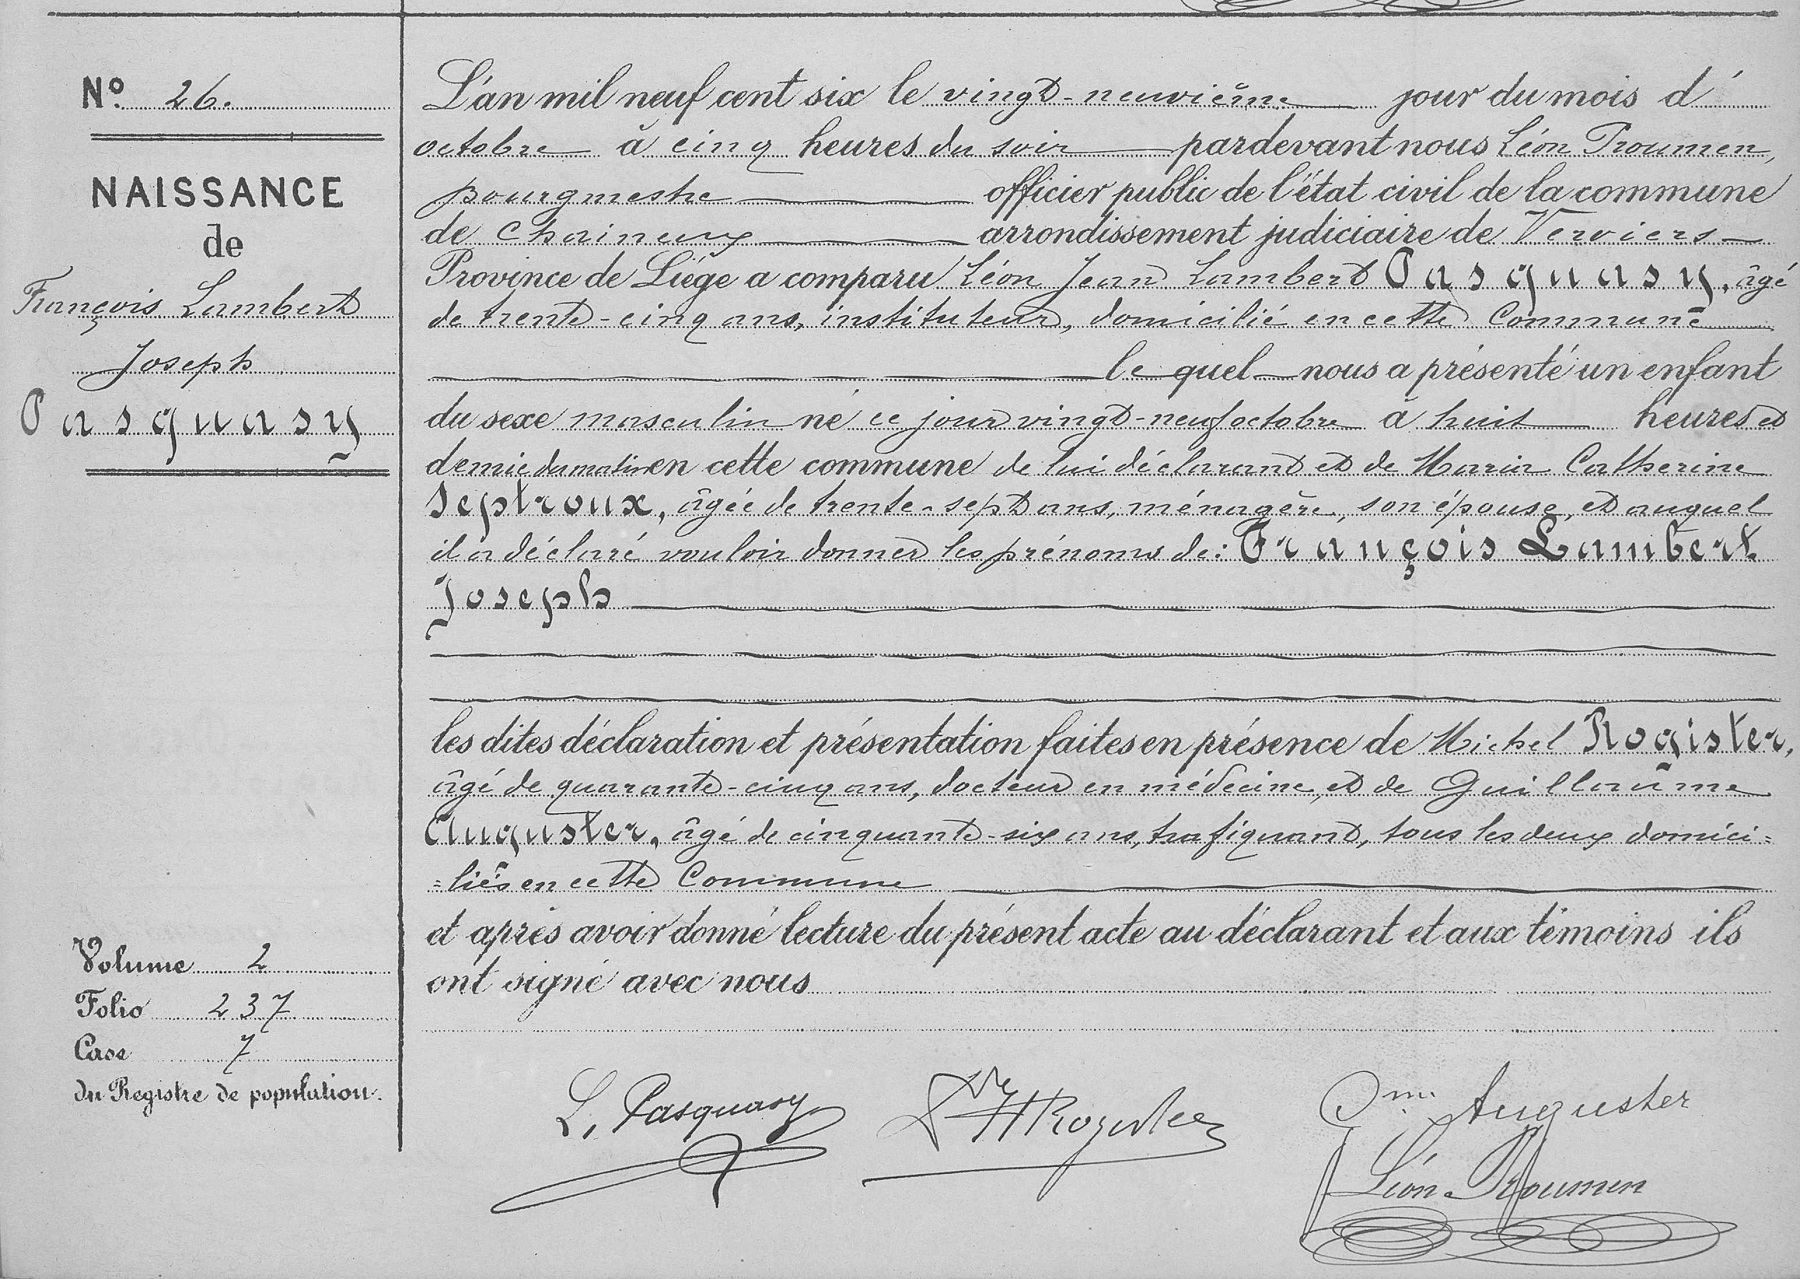 Nº 26.
NAISSANCE
de
François Lambert
Joseph
Pasquasy
Volume 2
Folio 237
Case 7
du Registre de population.
L'an mil neuf cent six le vingt-neuvième jour du mois d'
octobre à cinq heures du soir pardevant nous Léon Proumen,
bourgmestre officier public de l'état civil de la commune
de Chaineux arrondissement judiciaire de Verviers
Province de Liége a comparu Léon Jean Lambert Pasquasy, âgé
de trente-cinq ans, instituteur, domicilié en cette Commune
le quel nous a présenté un enfant
du sexe masculin né ce jour vingt-neuf octobre à huit heures et
demie du matin en cette commune de lui déclarant et de Maria Catherine
Septroux, âgée de trente-sept ans, ménagère, son épouse, et auquel
il a déclaré vouloir donner les prénoms de: François Lambert
Joseph
les dites déclaration et présentation faites en présence de Michel Rogister,
âgé de quarante-cinq ans, docteur en médecine, et de Guillaume
Auguster, âgé de cinquante-six ans, trafiquant, tous les deux domici=
=liés en cette Commune
et après avoir donné lecture du présent acte au déclarant et aux témoins ils
ont signé avec nous
L. Pasquasy Dr M Rogister Gme Auguster
Léon Proumen